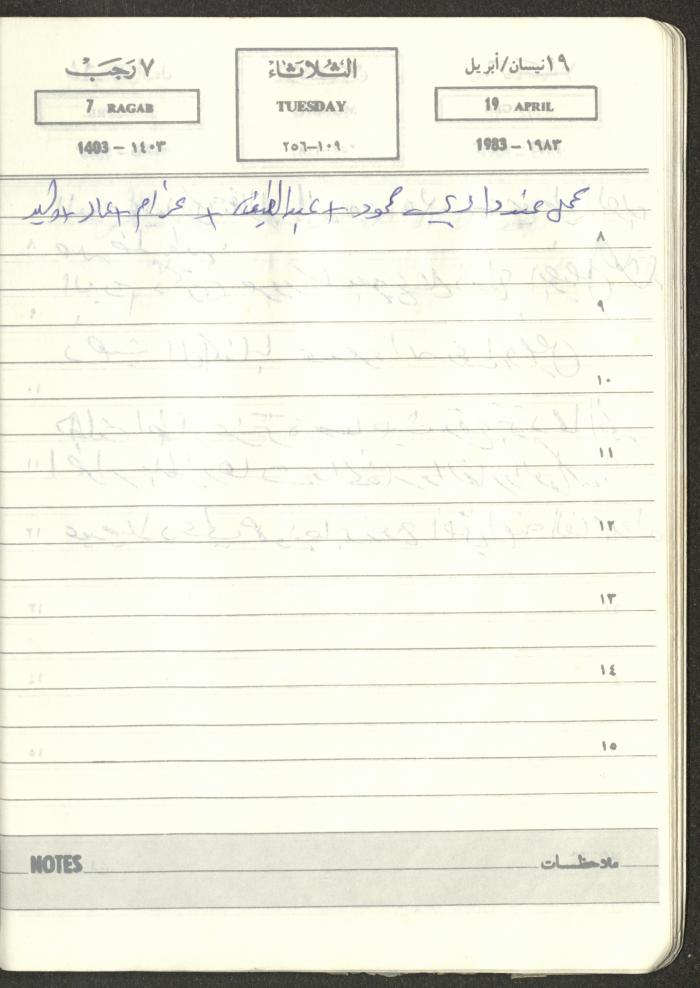 ١٩ نيسان/أبريل الثلاثاء ٧ رجب
19 APRIL TUESDAY 7 RAGAB
1983 – ١٩٨٣ ١٠٩–٢٥٦ 1403 – ١٤٠٣
عمل عند داري محمود + عبد اللطيف + عزام + عماد + وليد
٨
٩
١٠
١١
١٢
١٣
١٤
١٥
ملاحظات NOTES